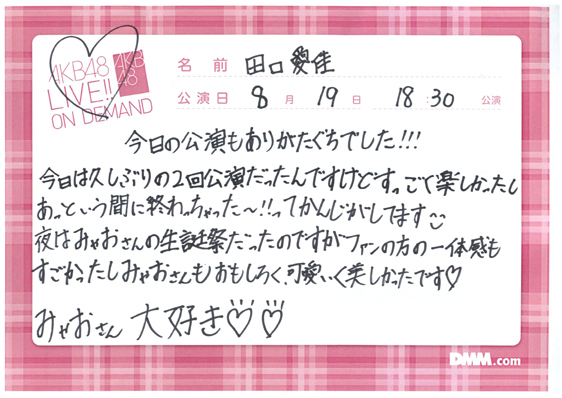 AKB48
LIVE!!
ON DEMAND
AKB
48
名前 田口愛佳
公演日 8月19日 18:30公演
今日の公演もありがたぐちでした!!!
今日は久しぶりの2回公演だったんですけどすっごく楽しかったし
あっという間に終わっちゃった〜!!ってかんじがしてます
夜はみゃおさんの生誕祭だったのですがファンの方の一体感も
すごかったしみゃおさんもおもしろく、可愛いく美しかったです♡
みゃおさん 大好き♡♡
DMM.com